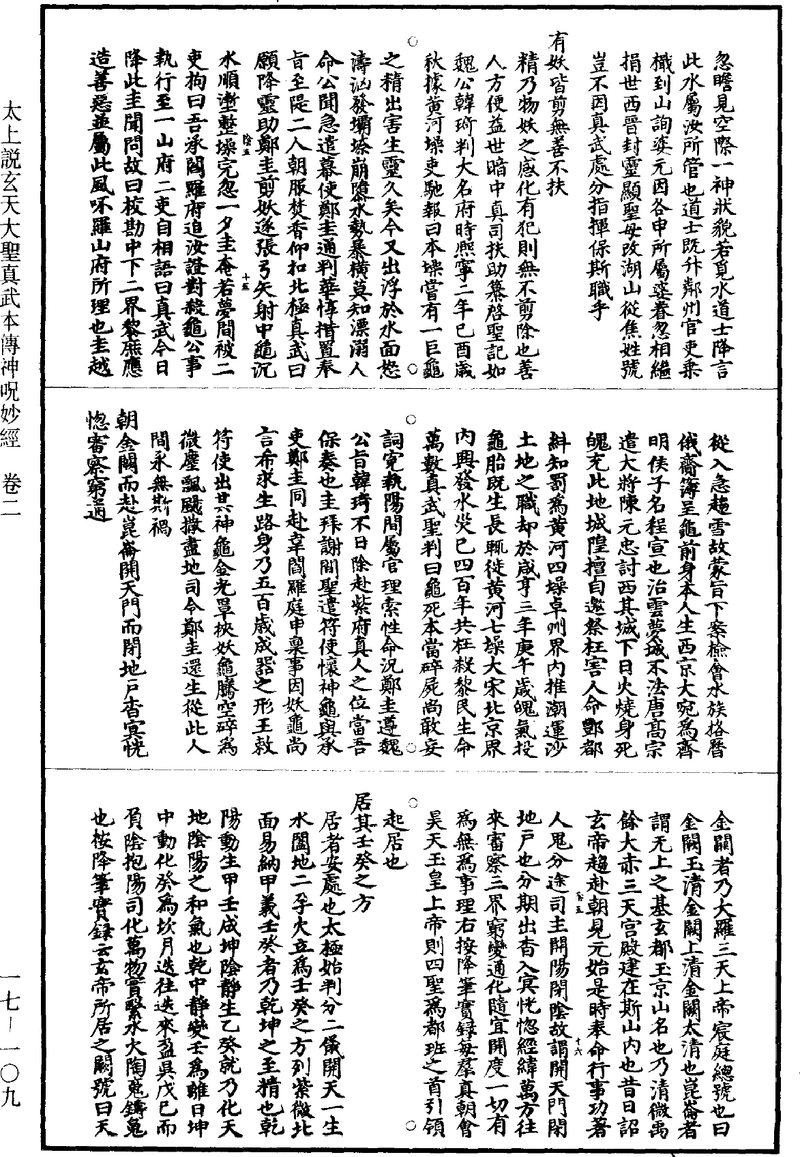 忽瞻見空際一神狀貌若覓水道士降言
此水屬汝所管也道士既升鄰州官吏乘
檝到山詢婆元因各申所屬婆眷忽相繼
捐世西晉封靈顯聖母改湖山從焦姓號
豈不因真武處分指揮保斯職乎
有妖皆剪無善不扶
精乃物妖之感化有犯則無不剪除也善
人方便益世暗中真司扶助纂啓聖記如
魏公韓琦判大名府時熙寧二年己酉歲
秋據黃河埽吏馳報曰本埽嘗有一巨龜
之精出害生靈久矣今又出浮於水面怒
濤汹發壩埽崩隳水勢暴橫莫知漂溺人
命公聞急遣幕使鄭圭通判華惇措置奉
旨至隄二人朝服焚香仰扣北極真武曰
願降靈助鄭圭剪妖遂張弓矢射中龜沉
水順塗整埽完忽一夕圭奄若夢間被二
吏拘曰吾承閻羅府追汝證對殺龜公事
執行至一山府二吏自相語曰真武今日
降此圭聞問故曰校勘中下二界黎庶應
造善惡並屬此風吥羅山府所理也圭越
從入急趨雪故蒙旨下案檢會水族格曆
俄齎簿呈龜前身本人生西京大宛為齊
明侯子名程宣也治雲夢城不法唐高宗
遣大將陳元忠討西其城下日火燒身死
魄充此地城隍擅自邀祭枉害人命酆都
斜知罰為黃河四埽卓州界內推潮運沙
土地之職却於咸亨三年庚午歲魄氣投
龜胎既生長輒徙黃河七埽大宋北京界
內興發水災已四百年共枉殺黎民生命
萬數真武聖判曰龜死本當碎屍尚敢妄
詞寃執陽間屬官理索性命況鄭圭遵魏
公旨韓琦不日除赴紫府真人之位當吾
保奏也圭拜謝間聖遣符使懷神龜與承
吏鄭圭同赴辜閻羅庭申稟事因妖龜尚
言希求生路身乃五百歲成器之形王敕
符使出其神龜金光罩柍妖龜騰空碎為
微塵飄颺撒盡地司令鄭圭還生從此人
間永無斯禍
朝金闕而赴崑崙開天門而閉地戶杳冥恍
惚審察窮通
金闕者乃大羅三天上帝宸庭總號也曰
金闕玉清金闕上清金闕太清也崑崙者
謂无上之基玄都玉京山名也乃清微禹
餘大赤三天宮殿建在斯山內也昔日詔
玄帝趨赴朝見元始是時奉命行事功著
人鬼分途司主開陽閉陰故謂開天門閉
地戶也分期出杳入冥恍惚經緯萬方往
來審察三界窮變通化隨宜開度一切有
為無為事理右按降筆實錄每羣真朝會
昊天玉皇上帝則四聖為都班之首引領
起居也
居其壬癸之方
居者安處也太極始判分二儀開天一生
水闔地二孚火立為壬癸之方列紫微北
面易納甲義壬癸者乃乾坤之主精也乾
陽動生甲壬成坤陰靜生乙癸就乃化天
地陰陽之和氣也乾中靜變壬為離日坤
中動化癸為坎月迭往迭來盈昃戊己而
負陰抱陽司化萬物實繫水火陶冤鑄寃
也按降筆實錄云玄帝所居之闕號曰天
太上説玄天大聖真武本傳神呪妙經 卷二
一七—一〇九